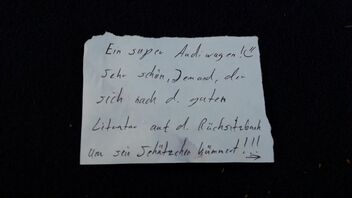 Ein super Audiwagen!☺
sehr schön, Jemand, der
sich nach d. guten
Literatur auf d. Rücksitzbank
um sein Schätzchen kümmert!!!
→